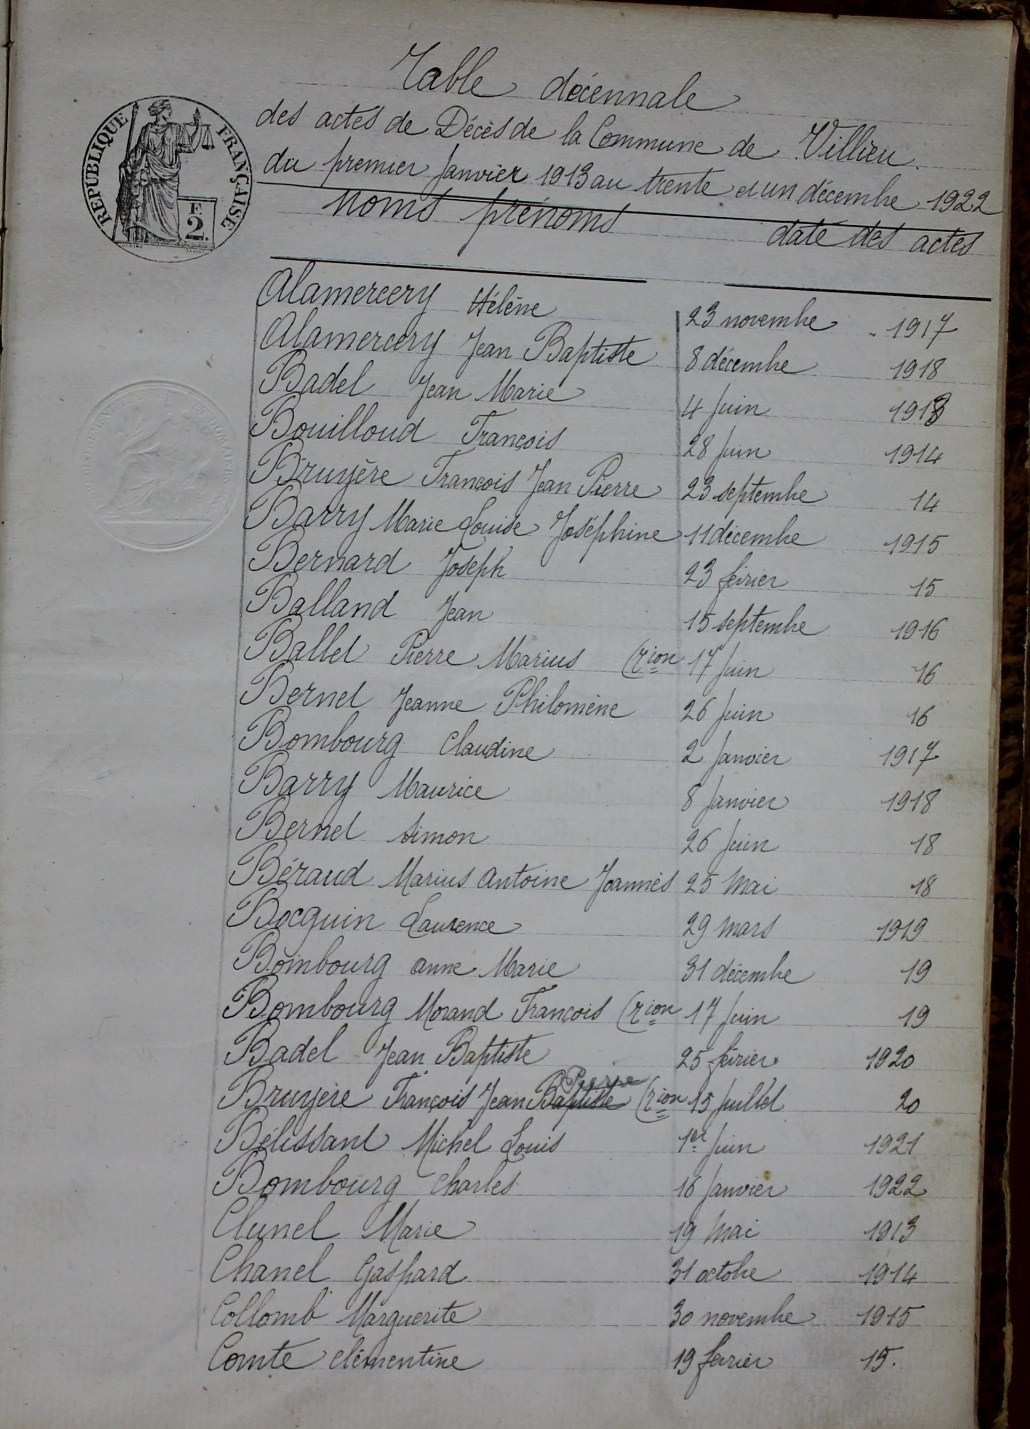 Table décennale
des actes de Décès de la Commune de Villieu
du premier Janvier 1913 au trente et un décembre 1922
RÉPUBLIQUE FRANÇAISE
F
2.
noms prénoms date des actes
Alamercery Hélène 23 novembre 1917
Alamercery Jean Baptiste 8 décembre 1918
Badel Jean Marie 4 Juin 1913
Bouilloud François 28 Juin 1914
Bruyère François Jean Pierre 23 septembre 14
Barry Marie Louise Joséphine 11 décembre 1915
Bernard Joseph 23 février 15
Balland Jean 15 septembre 1916
Ballet Pierre Marius (Tion 17 Juin 16
Bernet Jeanne Philomène 26 Juin 16
Bombourg Claudine 2 Janvier 1917
Barry Maurice 8 Janvier 1918
Bernet Simon 26 Juin 18
Béraud Marius Antoine Joannès 25 Mai 18
Bocquin Laurence 29 mars 1919
Bombourg Anne Marie 31 décembre 19
Bombourg Morand François (Tion 17 Juin 19
Badel Jean Baptiste 25 février 1920
Pierre
Bruyère François Jean Baptiste (Tion 15 Juillet 20
Bélissant Michel Louis 1er Juin 1921
Bombourg Charles 16 Janvier 1922
Clunel Marie 19 Mai 1913
Chanel Gaspard 31 octobre 1914
Collomb Marguerite 30 novembre 1915
Comte Clémentine 19 février 15.